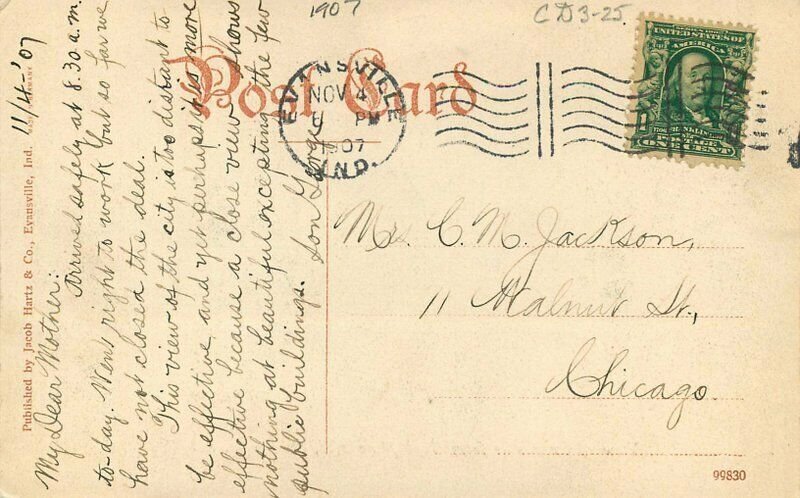 1907
CD3-25
Post Card
EVANSVILLE
NOV 4
PM
1907
IND.
UNITED STATES OF
AMERICA
1
FRANKLIN
POSTAGE
ONE CENT
11/4-'07
My Dear Mother:
Arrived safely at 8.30 a.m.
to-day. Went right to work but so far we
have not closed the deal.
This view of the city is too distant to
be effective and yet perhaps is more
effective because a close view shows
nothing at beautiful excepting the few
public buildings. Son George
Mrs. C. M. Jackson,
11 Walnut St.,
Chicago.
Published by Jacob Hartz & Co., Evansville, Ind.
99830